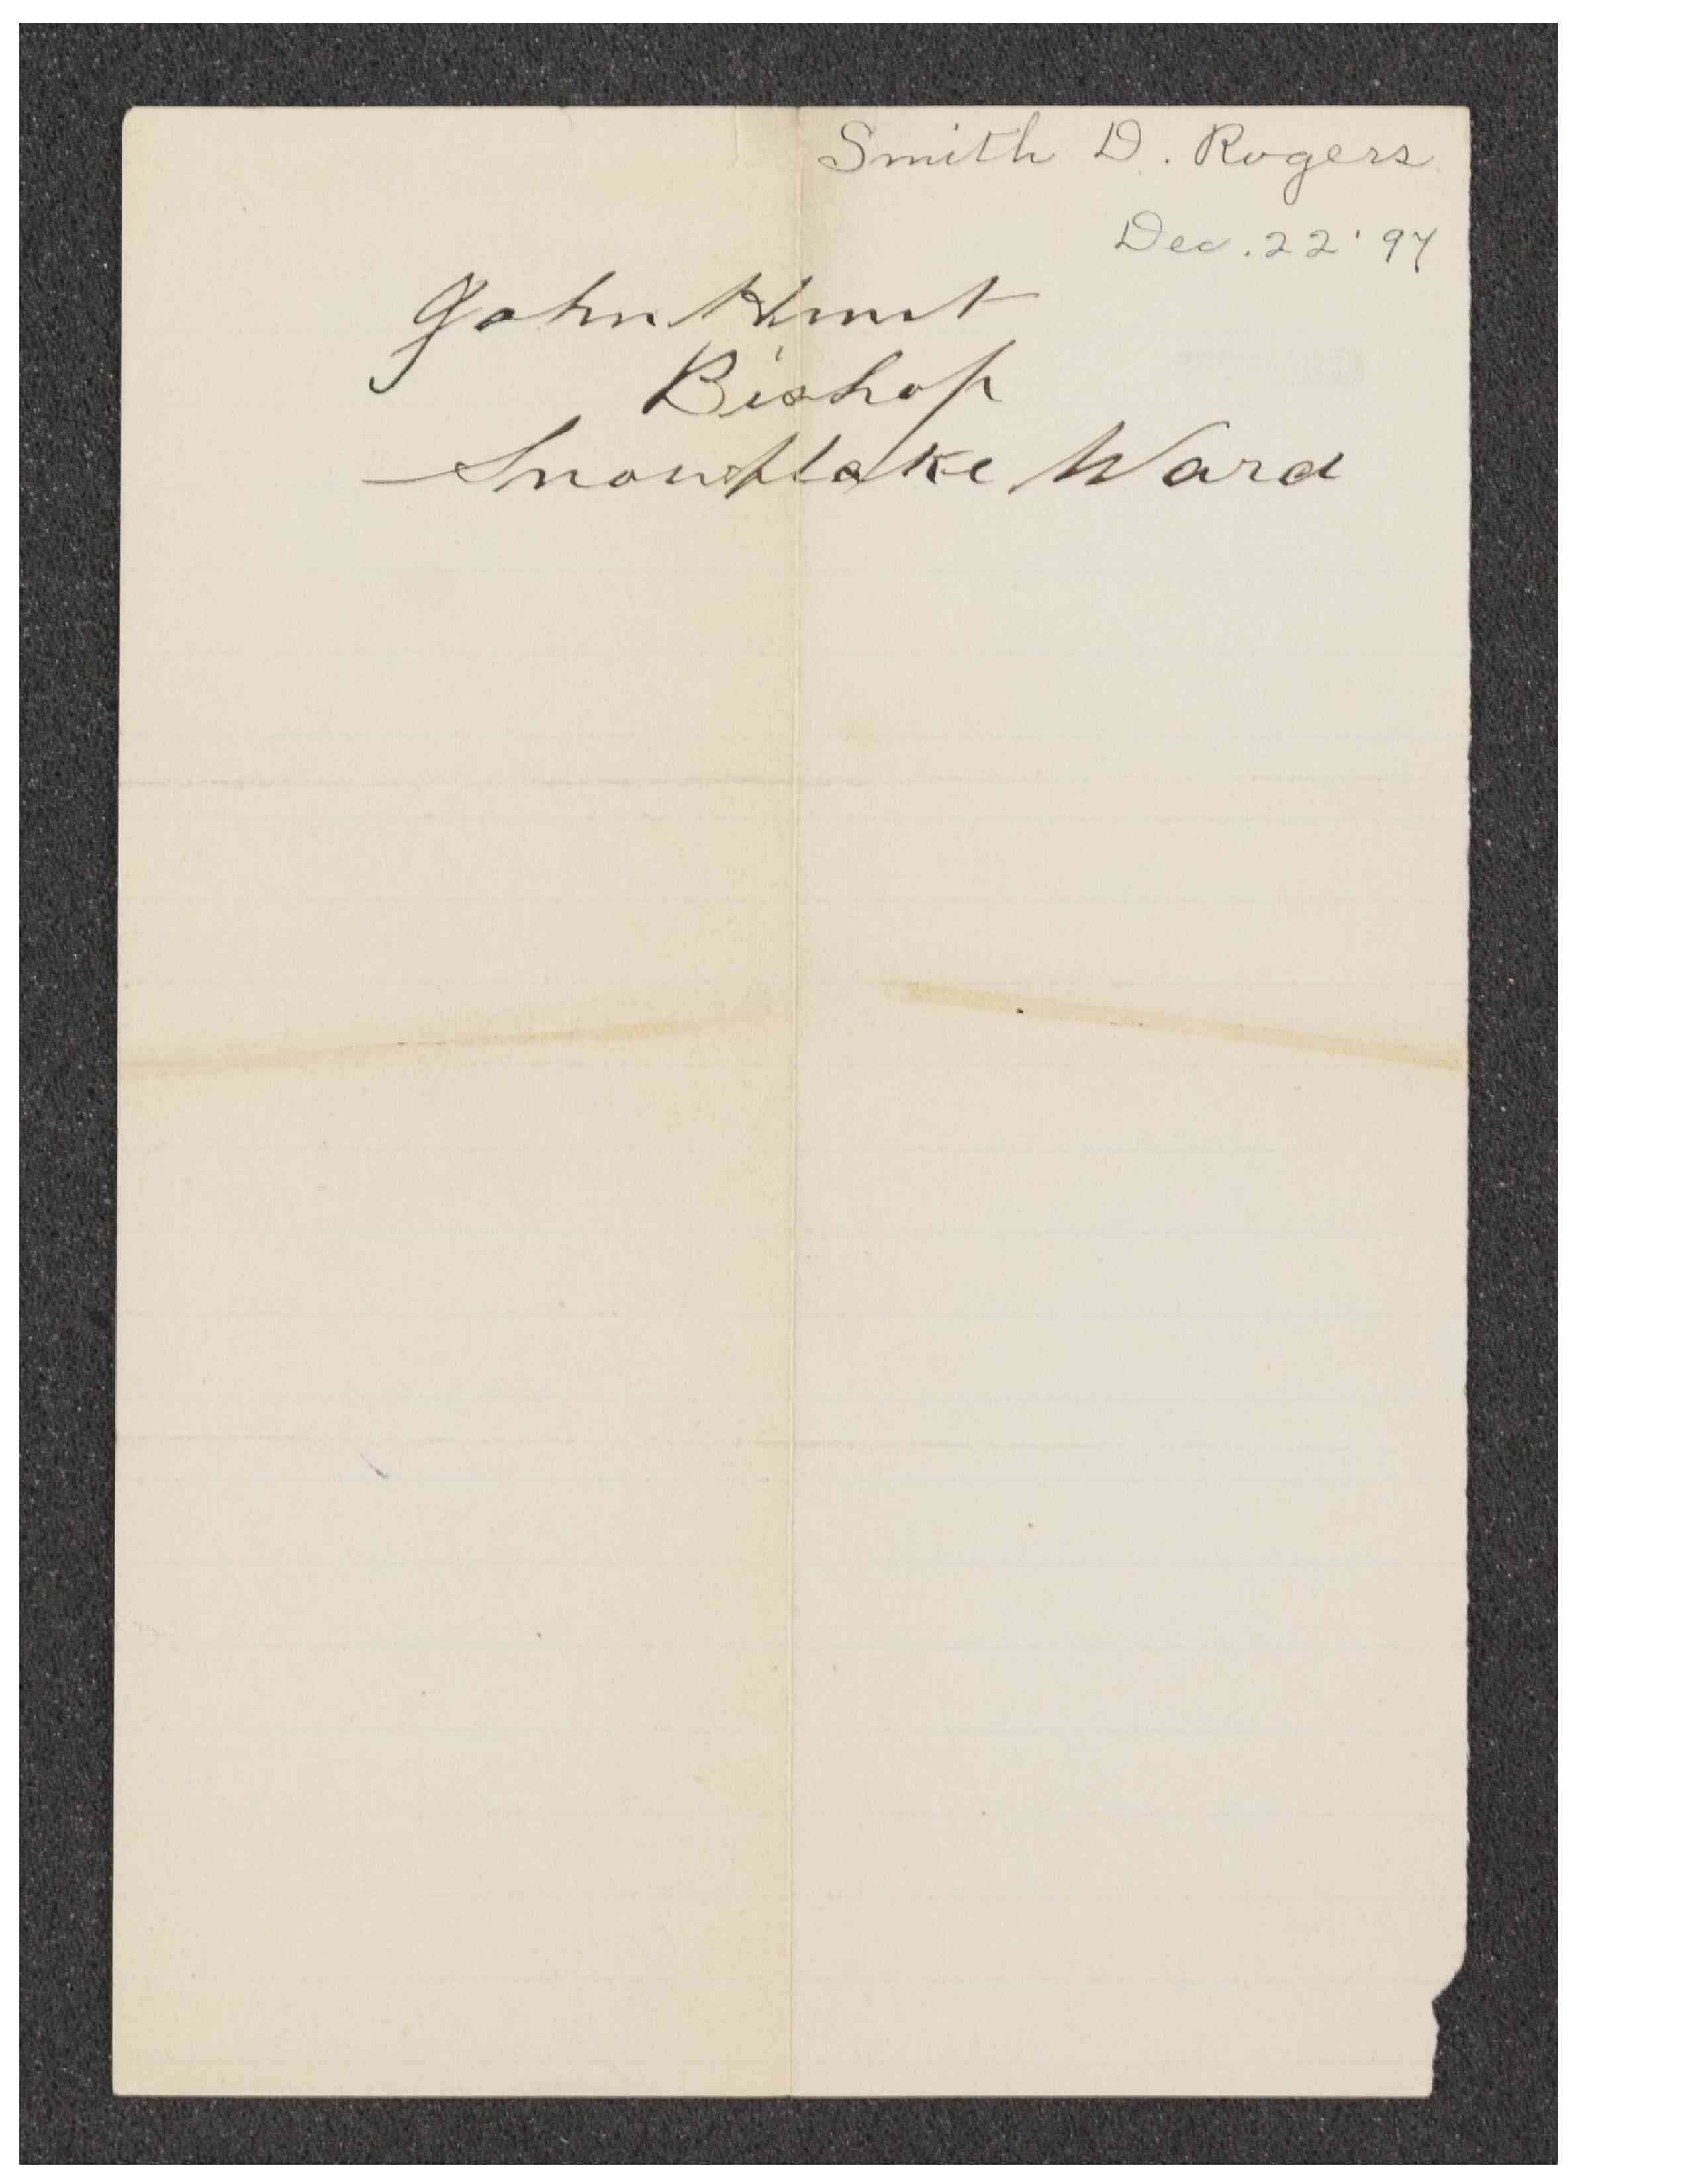 Smith D. Rogers
Dec. 22 '97
John Hunt
Bishop
Snowflake Ward